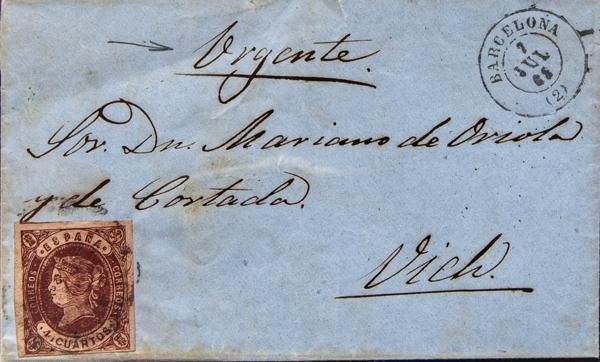 Urgente.
BARCELONA
7
JUL
(2)
Sor. Dn. Mariano de Oriola
y de Cortada.
Vich.
ESPAÑA
CORREOS
CORREOS
4 CUARTOS